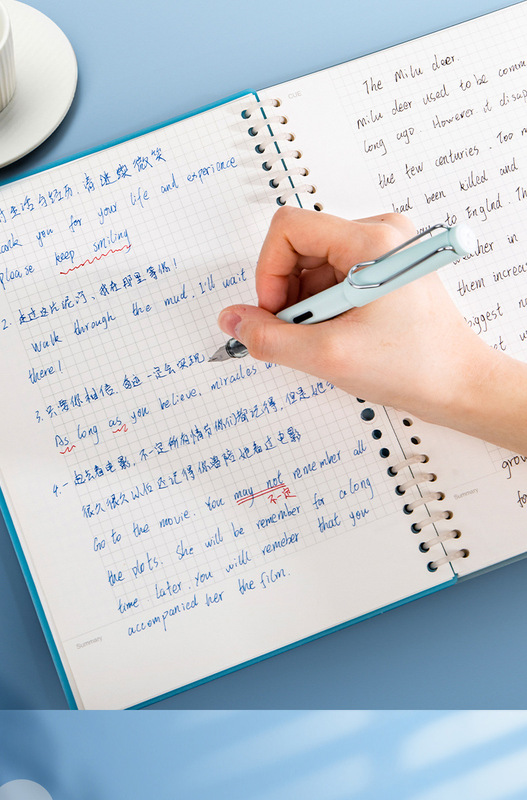 生活与经历,请继续微笑
thank you for your life and experience
please keep smiling
2. 走过这片泥泞,我在那里等你!
Walk through the mud, I'll wait
there!
3. 只要你相信,奇迹一定会实现
As long as you believe, miracles
4. 一起去看电影,不一定所有情节你们都记得,但是
很久很久以后还记得你陪她看过电影
Go to the movie. You may not remember all
不一定
the plots. She will be remember for a long
time later. You will remeber that you
accompanied her the film.
Summary
CUE
The Milu deer.
Milu deer used to be comm
long ago. However it disap
the few centuries. Too m
had been killed and
to Englnd. Th
in
them increas
biggest
grow
Summary